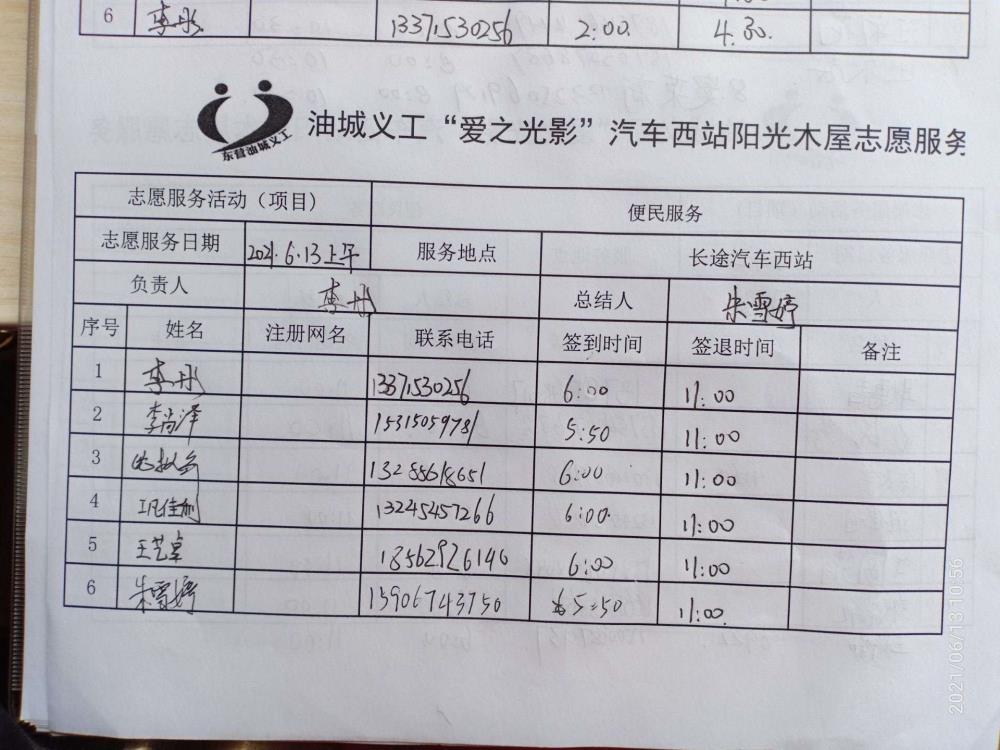 6 李彤 13371530256 2:00. 4.30.
东营油城义工
油城义工“爱之光影”汽车西站阳光木屋志愿服务
志愿服务活动（项目） 便民服务
志愿服务日期 2021.6.13上午 服务地点 长途汽车西站
负责人 李彤 总结人 朱雪婷
序号 姓名 注册网名 联系电话 签到时间 签退时间 备注
1 李彤 13371530256 6:00 11:00
2 李尚泽 15315059781 5:50 11:00
3 13288618651 6:00 11:00
4 13245457266 6:00. 11:00
5 王艺卓 18562926140 6:00 11:00
6 朱雪婷 15906743750 5:50 11:00.
2021/06/13 10:56